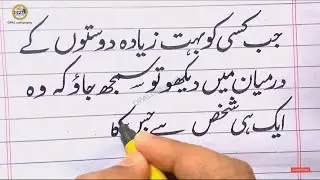 جب کسی کو بہت زیادہ دوستوں کے
درمیان میں دیکھو تو سمجھ جاؤ کہ وہ
ایک ہی شخص سے جس کا